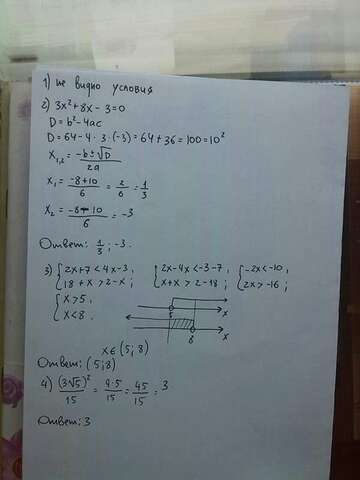 1) не видно условия
2) 3x²+8x-3=0
D=b²-4ac
D=64-4·3·(-3)=64+36=100=10²
x₁,₂=(-b±√D)/2a
x₁=(-8+10)/6=2/6=1/3
x₂=(-8-10)/6=-3
Ответ: 1/3; -3.
3) {2x+7<4x-3, {2x-4x<-3-7, {-2x<-10,
{18+x>2-x; {x+x>2-18; {2x>-16;
{x>5,
{x<8.
5 x
8 x
x∈(5;8)
Ответ: (5;8)
4) (3√5)²/15=9·5/15=45/15=3
Ответ: 3